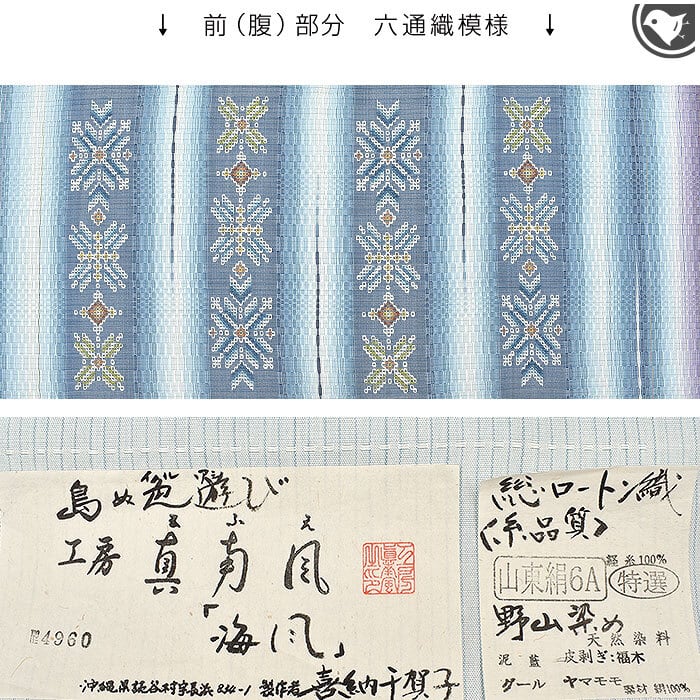 ↓ 前（腹）部分 六通織模様 ↓
島ぬ色遊び
工房 真南風
ま ふ え
「海風」
№4960
沖縄県読谷村字長浜834-1 製作者 喜納千賀子
総ロートン織
〈糸品質〉
経糸100%
山東絹6A 特選
野山染め
天然染料
泥藍 皮剥ぎ:福木
グール ヤマモモ
緑材 絹100%